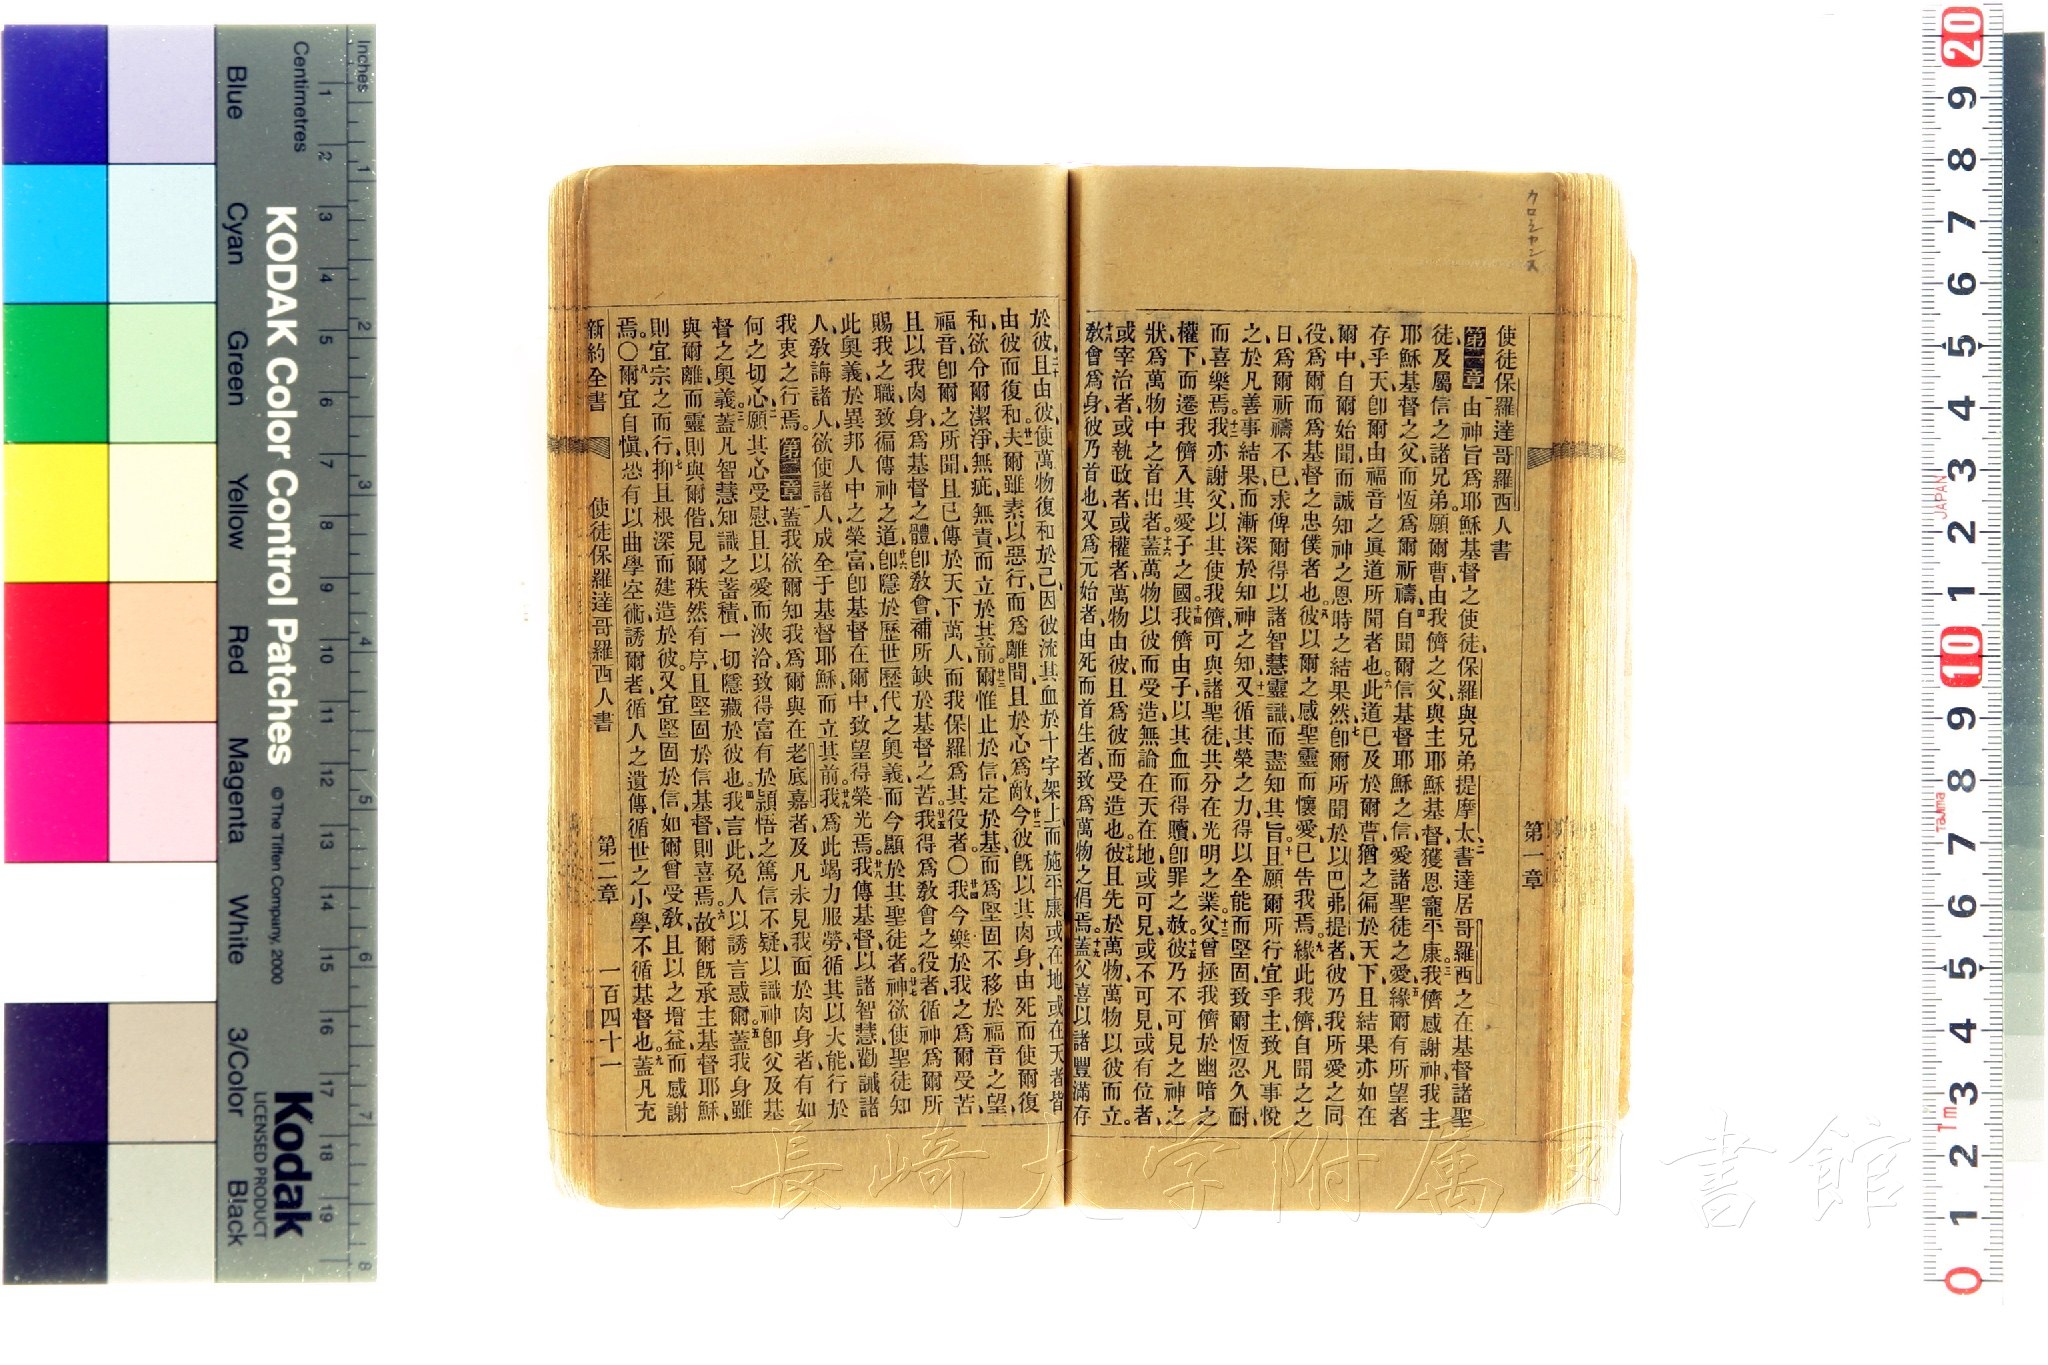 クロシヤンス
第一章
使徒保羅達哥羅西人書
第一章 一由神旨爲耶穌基督之使徒保羅與兄弟提摩太、二書達居哥羅西之在基督諸聖
徒、及屬信之諸兄弟、願爾曹由我儕之父、與主耶穌基督、獲恩寵平康、三我儕感謝神我主
耶穌基督之父、而恆爲爾祈禱、四自聞爾信基督耶穌之信、愛諸聖徒之愛、五緣爾有所望者
存乎天、卽爾由福音之眞道所聞者也、六此道已及於爾曹、猶之徧於天下、且結果亦如在
爾中、自爾始聞而誠知神之恩時之結果然、七卽爾所聞於以巴弗提者、彼乃我所愛之同
役、爲爾而爲基督之忠僕者也、八彼以爾之感聖靈而懷愛、已告我焉、九緣此我儕自聞之之
日、爲爾祈禱不已、求俾爾得以諸智慧靈識、而盡知其旨、十且願爾所行、宜乎主、致凡事悅
之、於凡善事結果、而漸深於知神之知、十一又循其榮之力、得以全能而堅固、致爾恆忍久耐、
而喜樂焉、十二我亦謝父、以其使我儕可與諸聖徒共分在光明之業、十三父曾拯我儕於幽暗之
權下、而遷我儕入其愛子之國、十四我儕由子以其血而得贖、卽罪之赦、十五彼乃不可見之神之
狀、爲萬物中之首出者、十六蓋萬物以彼而受造、無論在天在地、或可見、或不可見、或有位者、
或宰治者、或執政者、或權者、萬物由彼、且爲彼而受造也、十七彼且先於萬物、萬物以彼而立。
十八敎會爲身、彼乃首也、又爲元始者、由死而首生者、致爲萬物之倡焉、十九蓋父喜以諸豐滿存
於彼、二十且由彼、使萬物復和於己、因彼流其血於十字架上、而施平康、或在地、或在天者、皆
由彼而復和、廿一夫爾雖素以惡行而爲離間、且於心爲敵、廿二今彼旣以其肉身由死而使爾復
和、欲令爾潔淨無疵無責、而立於其前、廿三爾惟止於信、定於基、而爲堅固、不移於福音之望、
福音卽爾之所聞、且已傳於天下萬人、而我保羅爲其役者。〇廿四我今樂於我之爲爾受苦、
且以我肉身、爲基督之體、卽敎會、補所缺於基督之苦、廿五我得爲敎會之役者、循神爲爾所
賜我之職、致徧傳神之道、廿六卽隱於歷世歷代之奧義、而今顯於其聖徒者、廿七神欲使聖徒知
此奧義於異邦人中之榮富、卽基督在爾中、致望得榮光焉、廿八我傳基督、以諸智慧勸誡諸
人、敎誨諸人、欲使諸人成全于基督耶穌、而立其前、廿九我爲此竭力服勞、循其以大能行於
我衷之行焉。第二章 一蓋我欲爾知我爲爾與在老底嘉者、及凡未見我面於肉身者、有如
何之切心、二願其心受慰、且以愛而浹洽、致得富有於穎悟之篤信不疑、以識神卽父及基
督之奧義、三蓋凡智慧知識之蓄積、一切隱藏於彼也、四我言此免人以誘言惑爾、五蓋我身雖
與爾離、而靈則與爾偕、見爾秩然有序、且堅固於信基督則喜焉、六故爾旣承主基督耶穌、
則宜宗之而行、七抑且根深而建造於彼、又宜堅固於信、如爾曾受敎、且以之增益而感謝
焉。〇八爾宜自愼、恐有以曲學空術誘爾者、循人之遺傳、循世之小學、不循基督也、九蓋凡充
新約全書 使徒保羅達哥羅西人書 第二章 一百四十一
Inches
Centimetres
Blue
Cyan
Green
Yellow
Red
Magenta
White
3/Color
Black
KODAK Color Control Patches
© The Tiffen Company, 2000
Kodak
LICENSED PRODUCT
JAPAN
Tajima
長崎大学附属図書館